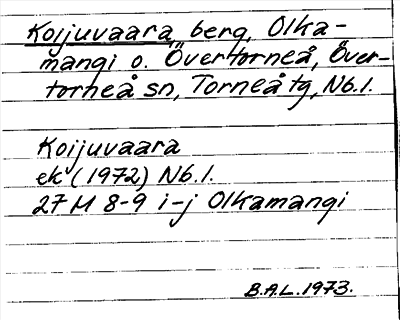 Koijuvaara, berg, Olka-
mangi o. Övertorneå, Över-
torneå sn, Torneå tg, Nb.l.
Koijuvaara
ek (1972) Nb.l.
27 M 8-9 i-j Olkamangi
B.A.L. 1973.